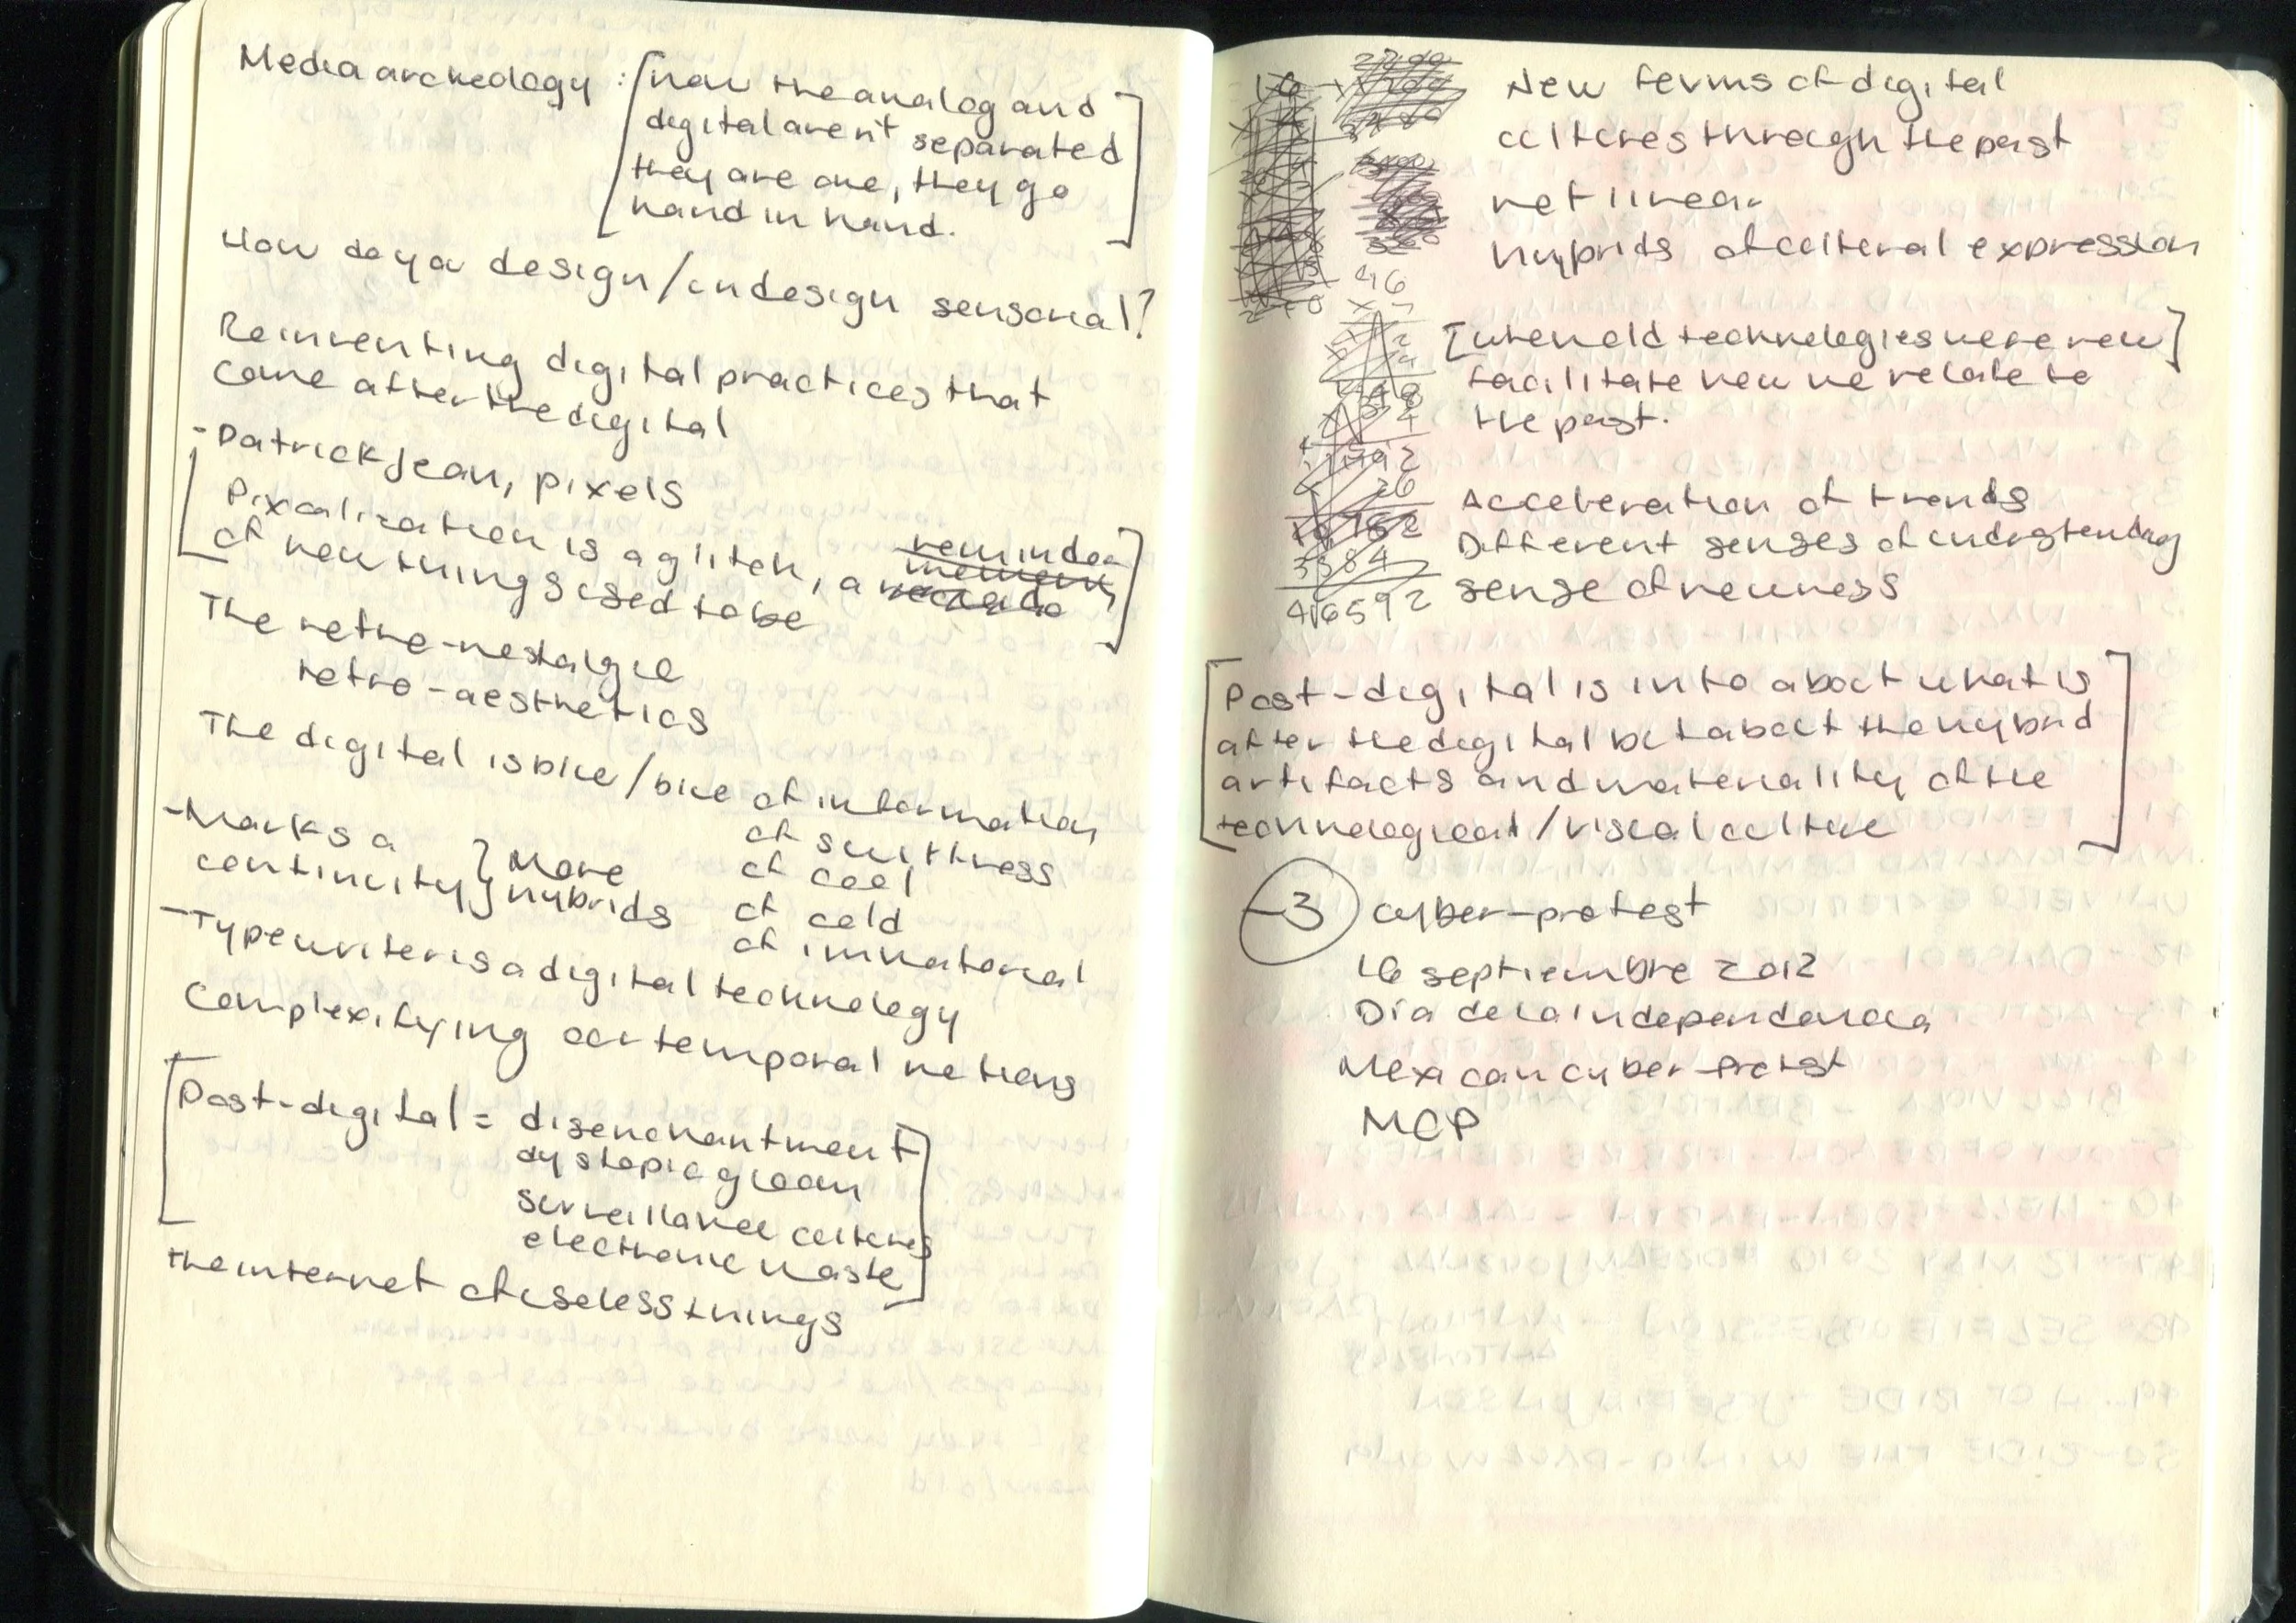 Media archeology : [how the analog and
digital aren't separated
they are one, they go
hand in hand.]
How do you design/undesign sensorial?
Reinventing digital practices that
come after the digital
- Patrick Jean, pixels
[Pixalization is a glitch, a reminder
memory
of how things used to be]
The retro-nostalgic
retro-aesthetics
The digital is blue/blue of information
of swiftness
of cool
of cold
of immaterial
- Marks a
continuity } More
hybrids
- Typewriter is a digital technology
Complexifying our temporal notions
[Post-digital = disenchantment
dystopic gloom
surveillance cultures
electronic waste]
The internet of useless things
New terms of digital
cultures through the past
not linear
hybrids of cultural expression
[when old technologies were new]
facilitate how we relate to
the past.
Acceleration of trends
Different senses of understanding
sense of newness
46
46592
[Post-digital is into about what is
after the digital but about the hybrid
artifacts and materiality of the
technological/visual culture]
-3 cyber-protest
16 septiembre 2012
Día de la independencia
Mexican cyber-protst
MCP